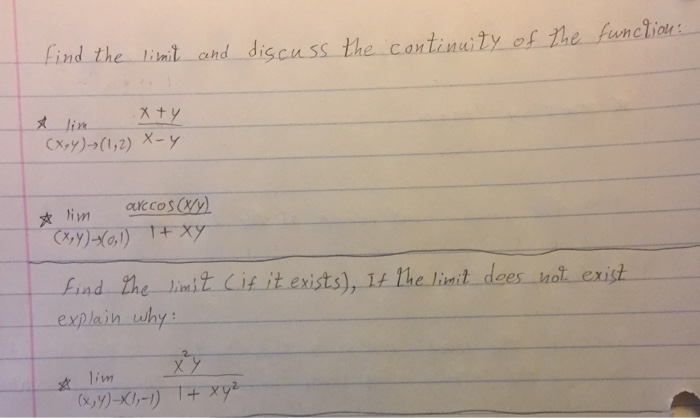 find the limit and discuss the continuity of the function:
☆ lim x+y
(x,y)→(1,2) x-y
☆ lim arccos(x/y)
(x,y)→(0,1) 1+xy
find the limit (if it exists), If the limit does not exist
explain why:
☆ lim x²y
(x,y)→(1,-1) 1+xy²